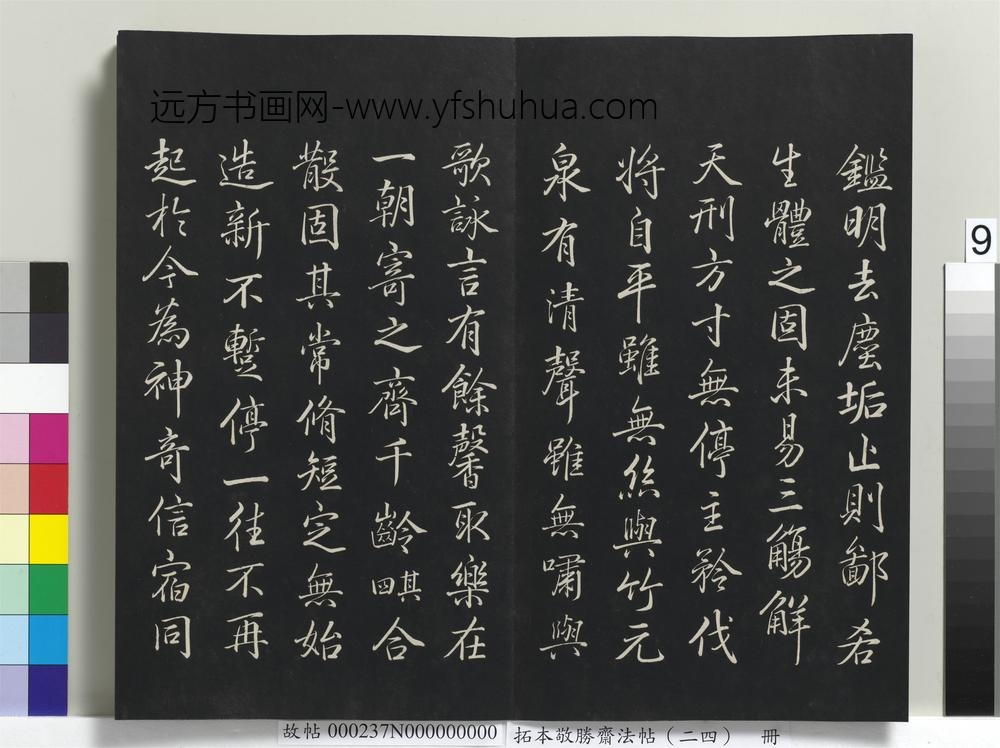 远方书画网-www.yfshuhua.com
鑑明去塵垢止則鄙吝
生體之固未易三觴解
天刑方寸無停主矜伐
將自平雖無絲與竹元
泉有清聲雖無嘯與
歌詠言有餘馨取樂在
一朝寄之齊千齡其四合
散固其常脩短定無始
造新不暫停一往不再
起於今為神奇信宿同
9
故帖 000237N000000000
拓本敬勝齋法帖（二四） 冊